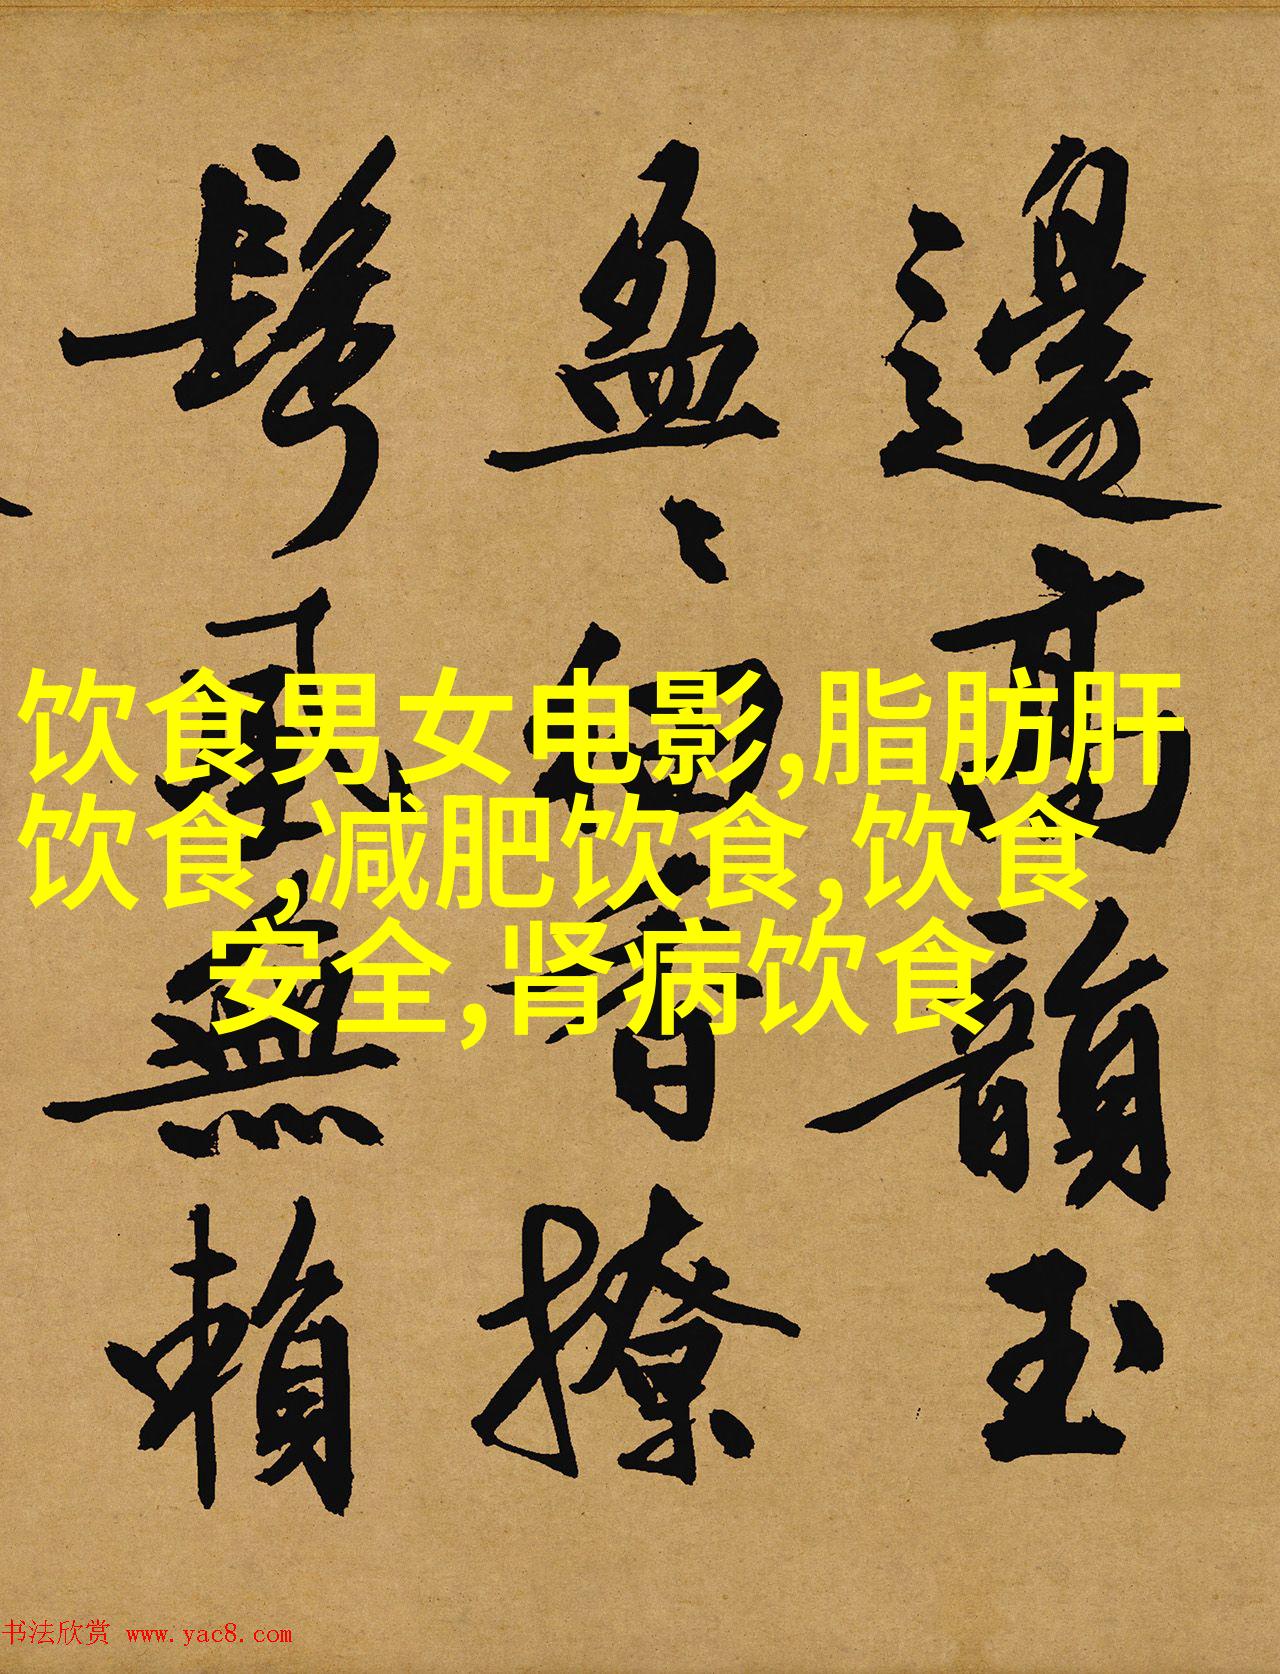 邊高韻玉
盈〻細香撩
鬢風無賴
饮食男女电影,脂肪肝
饮食,减肥饮食,饮食
安全,肾病饮食
书法欣赏 www.yac8.com